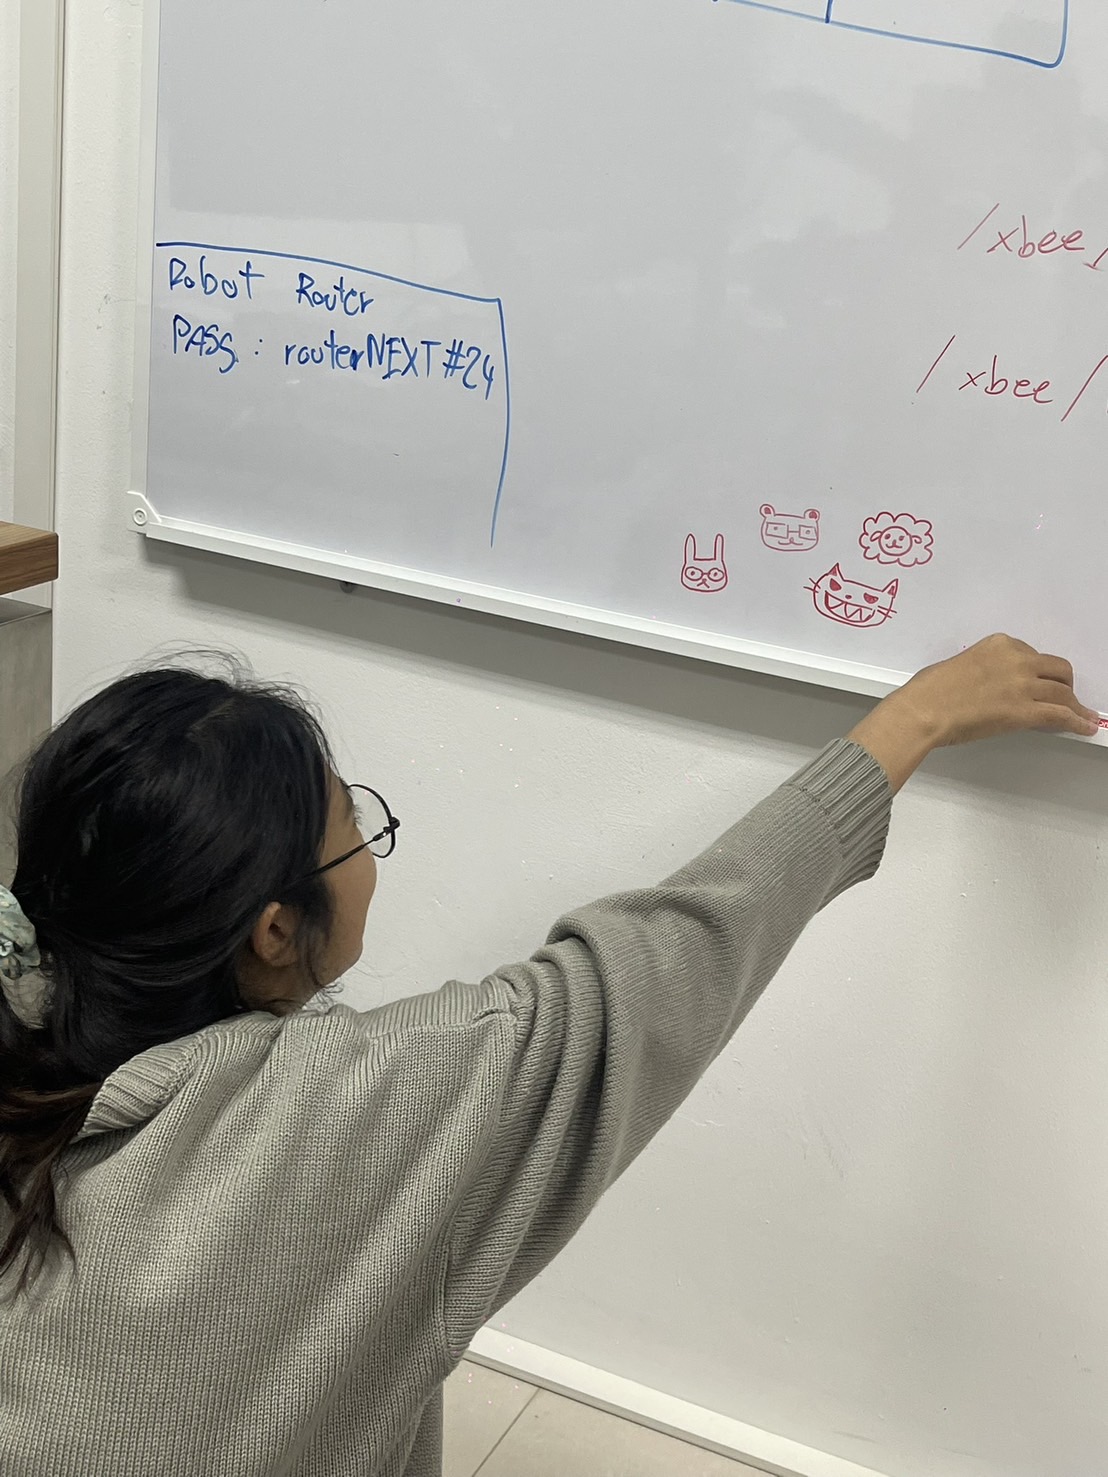 Robot Router
PASS : routerNEXT#24
/xbee/
/xbee/